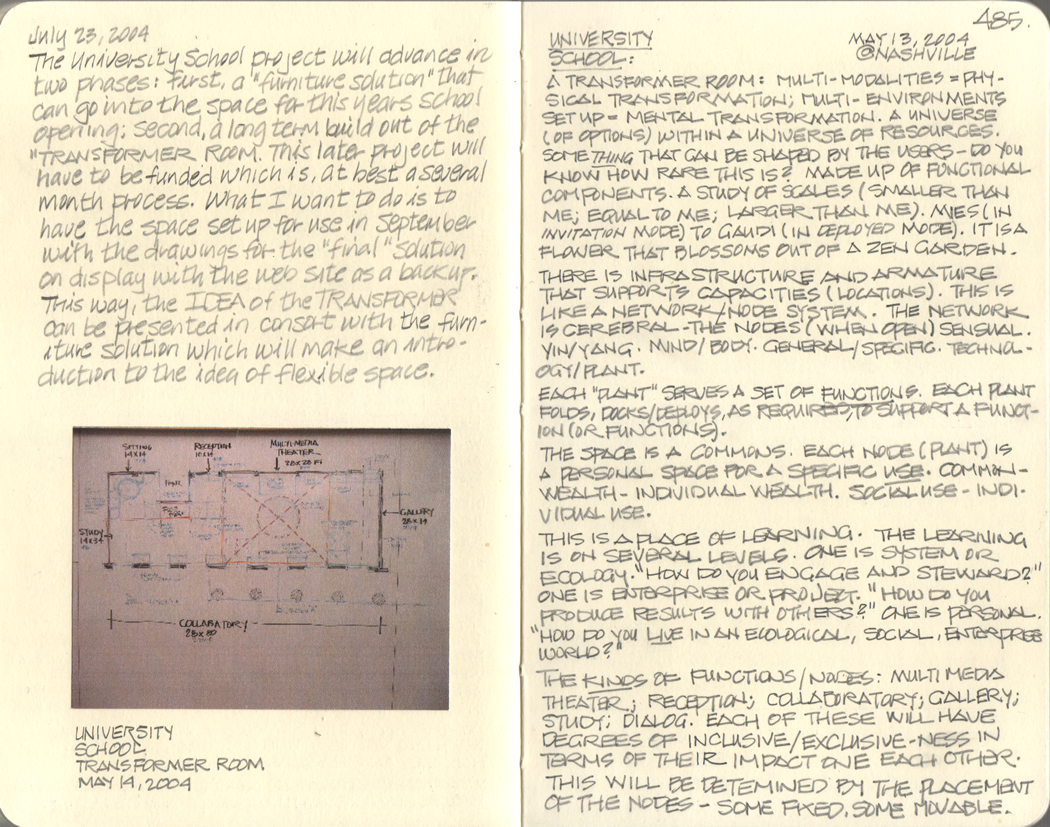 July 23, 2004
The University School project will advance in
two phases: first, a "furniture solution" that
can go into the space for this years School
opening; second, a long term build out of the
"TRANSFORMER ROOM. This later project will
have to be funded which is, at best a several
month process. What I want to do is to
have the space set up for use in September
with the drawings for the "final" solution
on display with the web site as a backup.
This way, the IDEA of the TRANSFORMER
can be presented in consort with the furn-
iture solution which will make an intro-
duction to the idea of flexible space.
SITTING
14X14
RECEPTION
10X14
MULTI-MEDIA
THEATER
28X28 FT
GALLERY
28X14
STUDY
14X34
COLLABATORY
28X80
UNIVERSITY
SCHOOL
TRANSFORMER ROOM
MAY 14, 2004
485.
UNIVERSITY
SCHOOL:
MAY 13, 2004
@NASHVILLE
A TRANSFORMER ROOM: MULTI-MODALITIES = PHY-
SICAL TRANSFORMATION; MULTI-ENVIRONMENTS
SET UP = MENTAL TRANSFORMATION. A UNIVERSE
(OF OPTIONS) WITHIN A UNIVERSE OF RESOURCES.
SOMETHING THAT CAN BE SHAPED BY THE USERS - DO YOU
KNOW HOW RARE THIS IS? MADE UP OF FUNCTIONAL
COMPONENTS. A STUDY OF SCALES (SMALLER THAN
ME; EQUAL TO ME; LARGER THAN ME). MIES (IN
INVITATION MODE) TO GAUDI (IN DEPLOYED MODE). IT IS A
FLOWER THAT BLOSSOMS OUT OF A ZEN GARDEN.
THERE IS INFRASTRUCTURE AND ARMATURE
THAT SUPPORTS CAPACITIES (LOCATIONS). THIS IS
LIKE A NETWORK/NODE SYSTEM. THE NETWORK
IS CEREBRAL - THE NODES (WHEN OPEN) SENSUAL.
YIN/YANG. MIND/BODY. GENERAL/SPECIFIC. TECHNOL-
OGY/PLANT.
EACH "PLANT" SERVES A SET OF FUNCTIONS. EACH PLANT
FOLDS, DOCKS/DEPLOYS, AS REQUIRED, TO SUPPORT A FUNCT-
ION (OR FUNCTIONS).
THE SPACE IS A COMMONS. EACH NODE (PLANT) IS
A PERSONAL SPACE FOR A SPECIFIC USE. COMMON-
WEALTH - INDIVIDUAL WEALTH. SOCIAL USE - INDI-
VIDUAL USE.
THIS IS A PLACE OF LEARNING. THE LEARNING
IS ON SEVERAL LEVELS. ONE IS SYSTEM OR
ECOLOGY. "HOW DO YOU ENGAGE AND STEWARD?"
ONE IS ENTERPRISE OR PROJECT. "HOW DO YOU
PRODUCE RESULTS WITH OTHERS?" ONE IS PERSONAL.
"HOW DO YOU LIVE IN AN ECOLOGICAL, SOCIAL, ENTERPRISE
WORLD?"
THE KINDS OF FUNCTIONS/NODES: MULTI MEDIA
THEATER; RECEPTION; COLLABORATORY; GALLERY;
STUDY; DIALOG. EACH OF THESE WILL HAVE
DEGREES OF INCLUSIVE/EXCLUSIVE-NESS IN
TERMS OF THEIR IMPACT ONE EACH OTHER.
THIS WILL BE DETEMINED BY THE PLACEMENT
OF THE NODES - SOME FIXED, SOME MOVABLE.